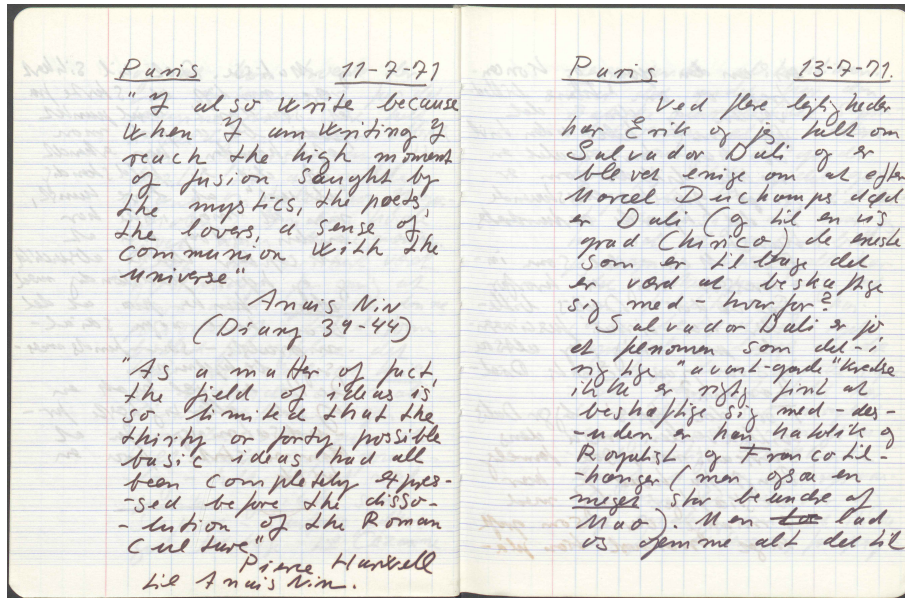 Paris 11-7-71
"I also write because
when I am writing I
reach the high moment
of fusion saught by
the mystics, the poets,
the lovers, a sense of
communion with the
universe"
Anais Nin
(Diary 39-44)
"As a matter of fact,
the field of ideas is
so limited that the
thirty or forty possible
basic ideas had all
been completely expres-
-sed before the disso-
-lution of the Roman
Culture"
Pierce Harwell
til Anais Nin.
Paris 13-7-71.
Ved flere lejligheder
har Erik og jeg talt om
Salvador Dali og er
blevet enige om at efter
Marcel Duchamps død
er Dali (og til en vis
grad Chirico) de eneste
som er tilbage det
er værd at beskæftige
sig med - hvorfor?
Salvador Dali er jo
et fenomen som det - i
rigtige "avant-garde" kredse
ikke er rigtig fint at
beskæftige sig med - des-
-uden er han katolik og
Royalist og Francotil-
-hænger (men også en
meget stor beundrer af
Mao). Men lad
os gemme alt det til